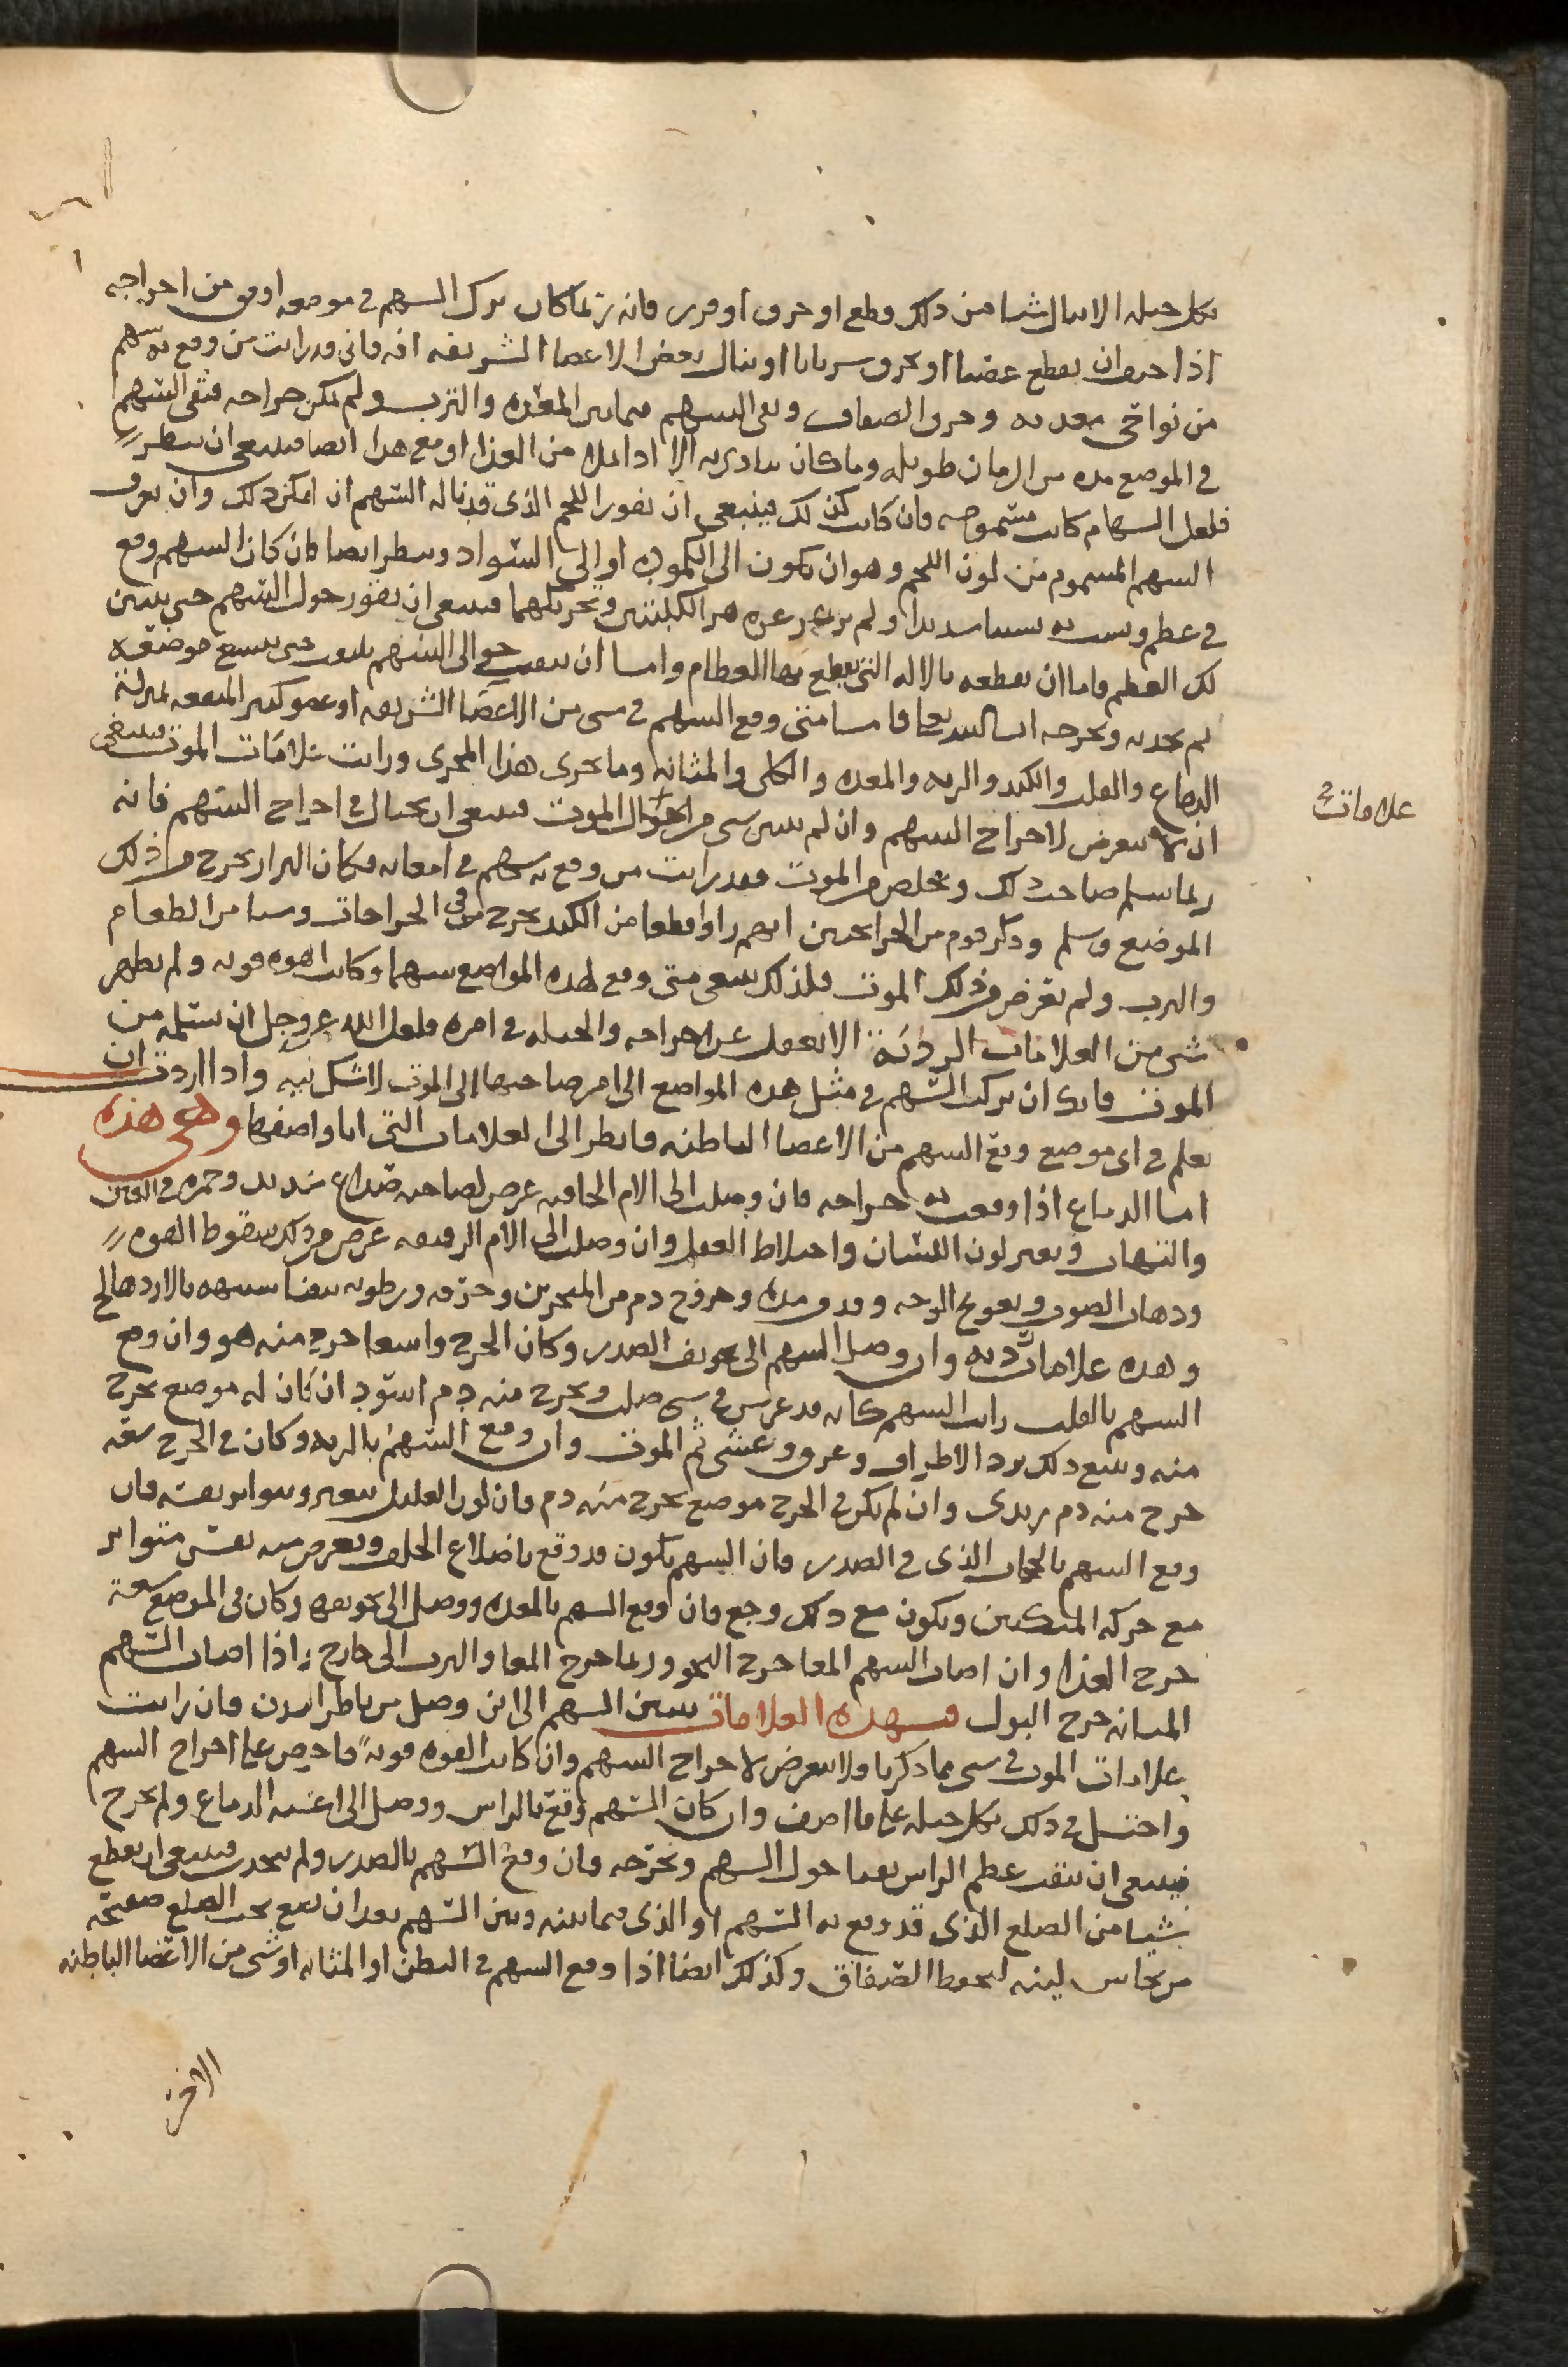 بكل حيله الا ينال شيا من ذلك قطع او خرق او فرى فانه ربما كان ترك السهم في موضعه اوفق من اخراجه
اذا خيف ان يقطع عضبا او يخرق سريانا او ينال بعض الاعضا الشريفه افه فانى قد رايت من وقع به سهم
من نواحى معدته وخرق الصفاق وبقى السهم فيما بين المعده والثرب ولم يمكن اخراجه فبقى السهم
في الموضع مده من الزمان طويله وما كان يتادى به الا اذا امتلا من الغذا ومع هذا ايضا فينبغى ان ينظر
فلعل السهام كانت مسمومه فان كانت كذلك فينبغى ان تقور اللحم الذى قد ناله السهم ان امكن ذلك وان تعرف
السهم المسموم من لون اللحم وهو ان يكون الى الكموده او الى السواد وينظر ايضا فان كان السهم وقع
في عظم ونشب به نشبا شديدا ولم يزعزعه هز الكلبتين وتحريكهما فينبغى ان تقور حول السهم حتى يتبين
لك العظم فاما ان تقطعه بالاله التى يقطع بها العظام واما ان تثقب حوالى السهم بمثقب حتى يتسع موضعه
ثم تجذبه وتخرجه فاما متى وقع السهم في شى من الاعضا الشريفه او عضو كثير المنفعه بمنزلة
الدماغ والقلب والكبد والريه والمعده والكلى والمثانه وما يجرى هذا المجرى ورايت علامات الموت فينبغى
ان لا تتعرض لاخراج السهم وان لم يتبين شى من احوال الموت فينبغى ان تحتال في اخراج السهم فانه
ربما سلم صاحب ذلك وتخلص من الموت فقد رايت من وقع به سهم في امعائه فكان البراز يخرج من ذلك
الموضع وسلم وذكر قوم من الجرايحيين انهم راوا قطعا من الكبد يخرج من الجراحات وشيا من الطعام
والثرب ولم تعرض من ذلك الموت فلذلك ينبغى متى وقع بهذه المواضع سهما وكانت القوه قويه ولم يظهر
شى من العلامات الرديه الا تغفل عن اخراجه والحيله في امره فلعل الله عز وجل ان يسلمه من
الموت فانك ان تركت السهم في مثل هذه المواضع الى امر صاحبها الى الموت لا شك فيه واذا اردت ان
تعلم في اى موضع وقع السهم من الاعضا الباطنه فانظر الى العلامات التى انا واصفها وهى هذه
اما الدماغ اذا وقعت به جراحه فان وصلت الى الام الجافيه عرض لصاحبه صداع شديد وحمره في العين
والتهاب وتغير لون اللسان واختلاط العقل وان وصلت الى الام الرقيقه عرض من ذلك سقوط القوه
وذهاب الصوت وتعويج الوجه وقى مده وخروج دم من المنخرين وحرقه ورطوبه بيضا شبيهه بالاردهالج
وهذه علامات رديه وان وصل السهم الى تجويف الصدر وكان الجرح واسعا خرج منه هو وان وقع
السهم بالقلب رايت السهم كانه قد غرس في شى صلب ويخرج منه دم اسود ان كان له موضع يخرج
منه ويتبع ذلك برد الاطراف وعرق وغشى ثم الموت وان وقع السهم بالريه وكان في الجرح سعه
خرج منه دم زبدى وان لم يكن في الجرح موضع يخرج منه دم فان لون العليل يتغير ويتواتر نفسه فان
وقع السهم بالحجاب الذى في الصدر فان السهم يكون قد وقع باضلاع الخلف ويعرض منه نفس متواتر
مع حركة المنكبين ويكون مع ذلك وجع فان وقع السهم بالمعده ووصل الى تجويفها وكان في الموضع سعة
خرج الغذا وان اصاب السهم المعا خرج النجو وربما خرج المعا والثرب الى خارج واذا اصاب السهم
المثانه خرج البول فهذه العلامات تبين السهم الى اين وصل من باطن البدن فان رايت
علامات الموت في شى مما ذكرنا ولا تتعرض لاخراج السهم وان كانت القوه قويه فاحرص على اخراج السهم
واحتل في ذلك بكل حيله على ما اصف وان كان السهم وقع بالراس ووصل الى اغشيه الدماغ ولم يخرج
فينبغى ان تثقب عظم الراس فيما حول السهم وتخرجه فان وقع السهم بالصدر ولم ينجذب فينبغى ان تقطع
شيا من الضلع الذى قد وقع به السهم او الذى فيما بينه وبين السهم بعد ان تضع تحت الضلع صفيحه
من نحاس لينه لتحفظ الصفاق وكذلك ايضا اذا وقع السهم في البطن او المثانه او شى من الاعضا الباطنه
علامات
الاخر